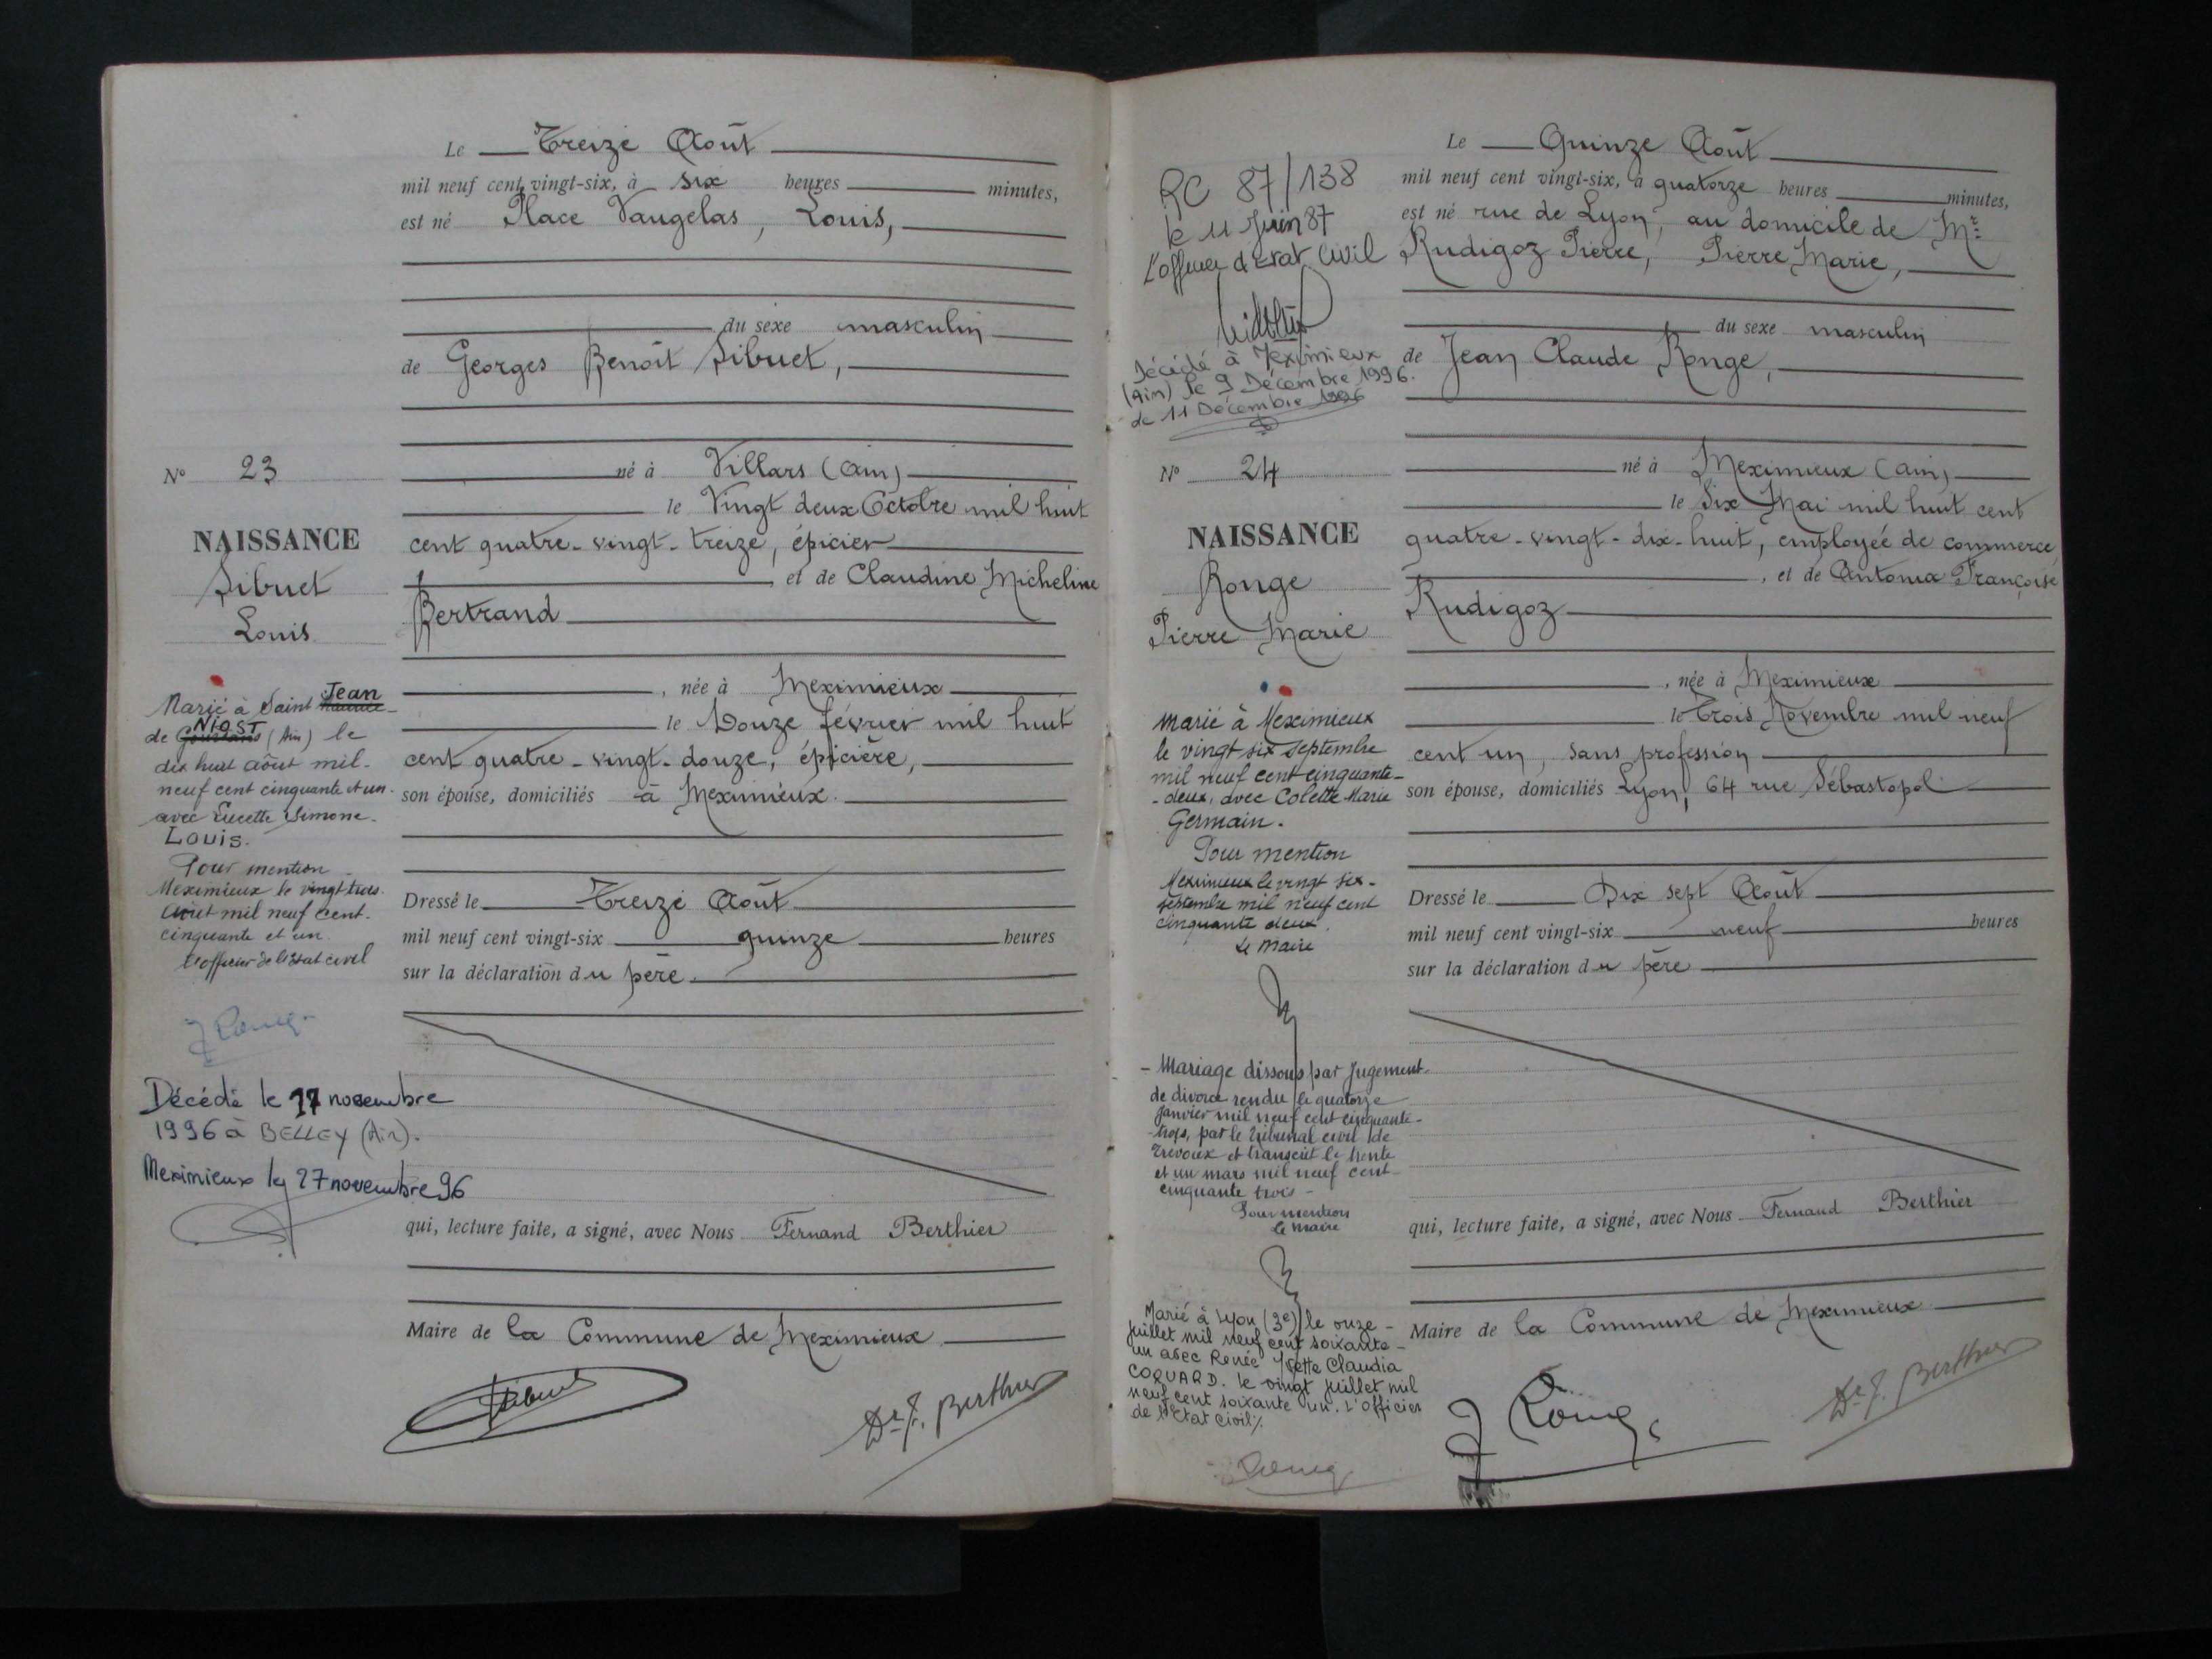 Le Treize Août
mil neuf cent vingt-six, à six heures minutes,
est né Place Vaugelas, Louis,
du sexe masculin
de Georges Benoît Sibuet,
né à Villars (Ain)
le Vingt deux Octobre mil huit
cent quatre-vingt-treize, épicier
et de Claudine Micheline
Bertrand
, née à Meximieux
le Douze février mil huit
cent quatre-vingt-douze, épicière,
son épouse, domiciliés à Meximieux.
Dressé le Treize Août
mil neuf cent vingt-six quinze heures
sur la déclaration du père.
qui, lecture faite, a signé, avec Nous Fernand Berthier
Maire de la Commune de Meximieux
Sibuet
Dr F. Berthier
N° 23
NAISSANCE
Sibuet
Louis
Jean
Marié à Saint Maurice-
NIOST
de Gourdans (Ain) le
dix huit août mil-
neuf cent cinquante et un-
avec Lucette Simone-
Louis.
Pour mention
Meximieux le vingt trois-
Août mil neuf cent-
cinquante et un
L'officier de l'Etat civil
Décédé le 17 novembre
1996 à BELLEY (Ain).
Meximieux le 27 novembre 96
Le Quinze Août
mil neuf cent vingt-six, à quatorze heures minutes,
est né rue de Lyon, au domicile de Mr
Rudigoz Pierre, Pierre Marie,
du sexe masculin
de Jean Claude Ronge,
né à Meximieux (Ain)
le Six Mai mil huit cent
quatre-vingt-dix-huit, employé de commerce
, et de Antonia Françoise
Rudigoz
, née à Meximieux
le Trois Novembre mil neuf
cent un, sans profession
son épouse, domiciliés Lyon, 64 rue Sébastopol
Dressé le Dix sept Août
mil neuf cent vingt-six neuf heures
sur la déclaration du père
qui, lecture faite, a signé, avec Nous Fernand Berthier
Maire de la Commune de Meximieux
J Ronge
Dr F. Berthier
RC 87/138
le 11 Juin 87
L'officier d'Etat Civil
Décédé à Meximieux
(Ain) le 9 Décembre 1996.
le 11 Décembre 1996
N° 24
NAISSANCE
Ronge
Pierre Marie
Marié à Meximieux
le vingt six septembre
mil neuf cent cinquante-
-deux, avec Colette Marie
Germain.
Pour mention
Meximieux le vingt six-
septembre mil neuf cent
cinquante deux.
Le Maire
- Mariage dissous par Jugement-
de divorce rendu le quatorze
janvier mil neuf cent cinquante-
-trois, par le tribunal civil de
Trévoux et transcrit le trente
et un mars mil neuf cent-
cinquante trois-
Pour mention
le maire
Marié à Lyon (3e) le onze-
juillet mil neuf cent soixante-
un avec Renée Yvette Claudia
COQUARD. le vingt juillet mil
neuf cent soixante un. L'officier
de l'Etat civil